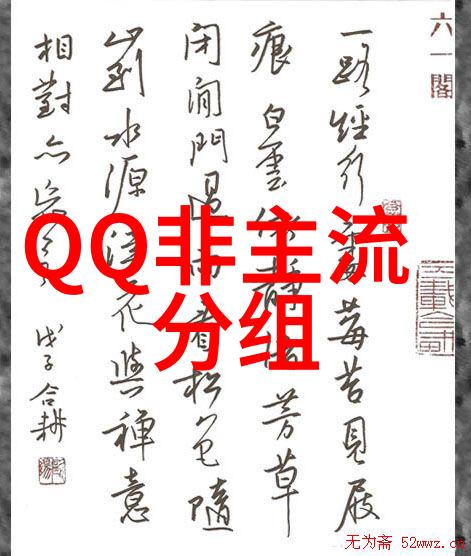 六一閣
一路經行處莓苔見屐
痕白雲依靜渚芳草
閉閒門過雨看松色隨
山到水源溪花與禪意
相對亦忘言
戊子合耕
QQ非主流
分组
无为斋 52wwz.c